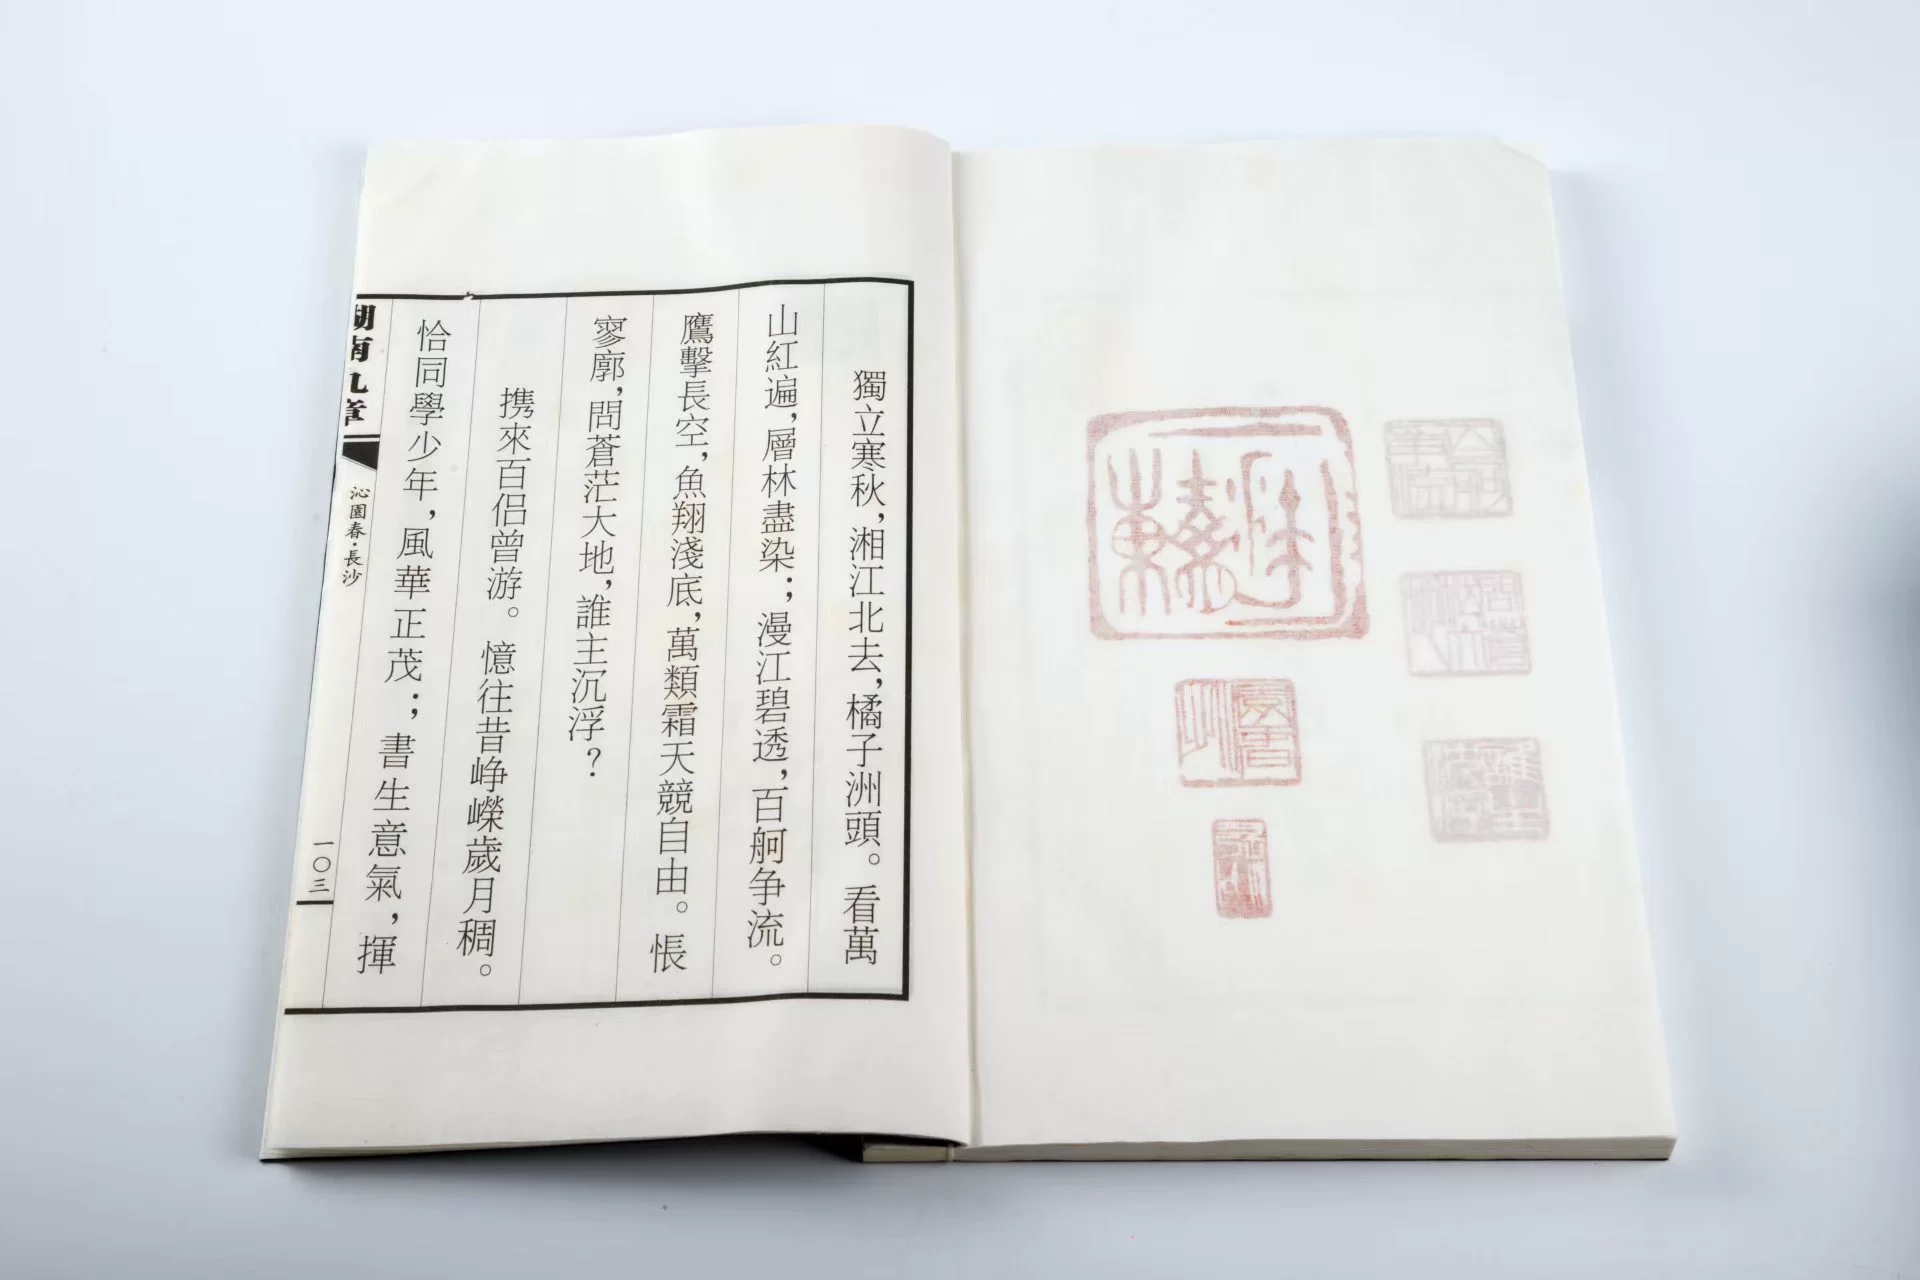 獨立寒秋，湘江北去，橘子洲頭。看萬
山紅遍，層林盡染；漫江碧透，百舸争流。
鷹擊長空，魚翔淺底，萬類霜天競自由。悵
寥廓，問蒼茫大地，誰主沉浮？
携來百侣曾游。憶往昔崢嶸歲月稠。
恰同學少年，風華正茂；書生意氣，揮
湖南九章
沁園春·長沙
一〇三